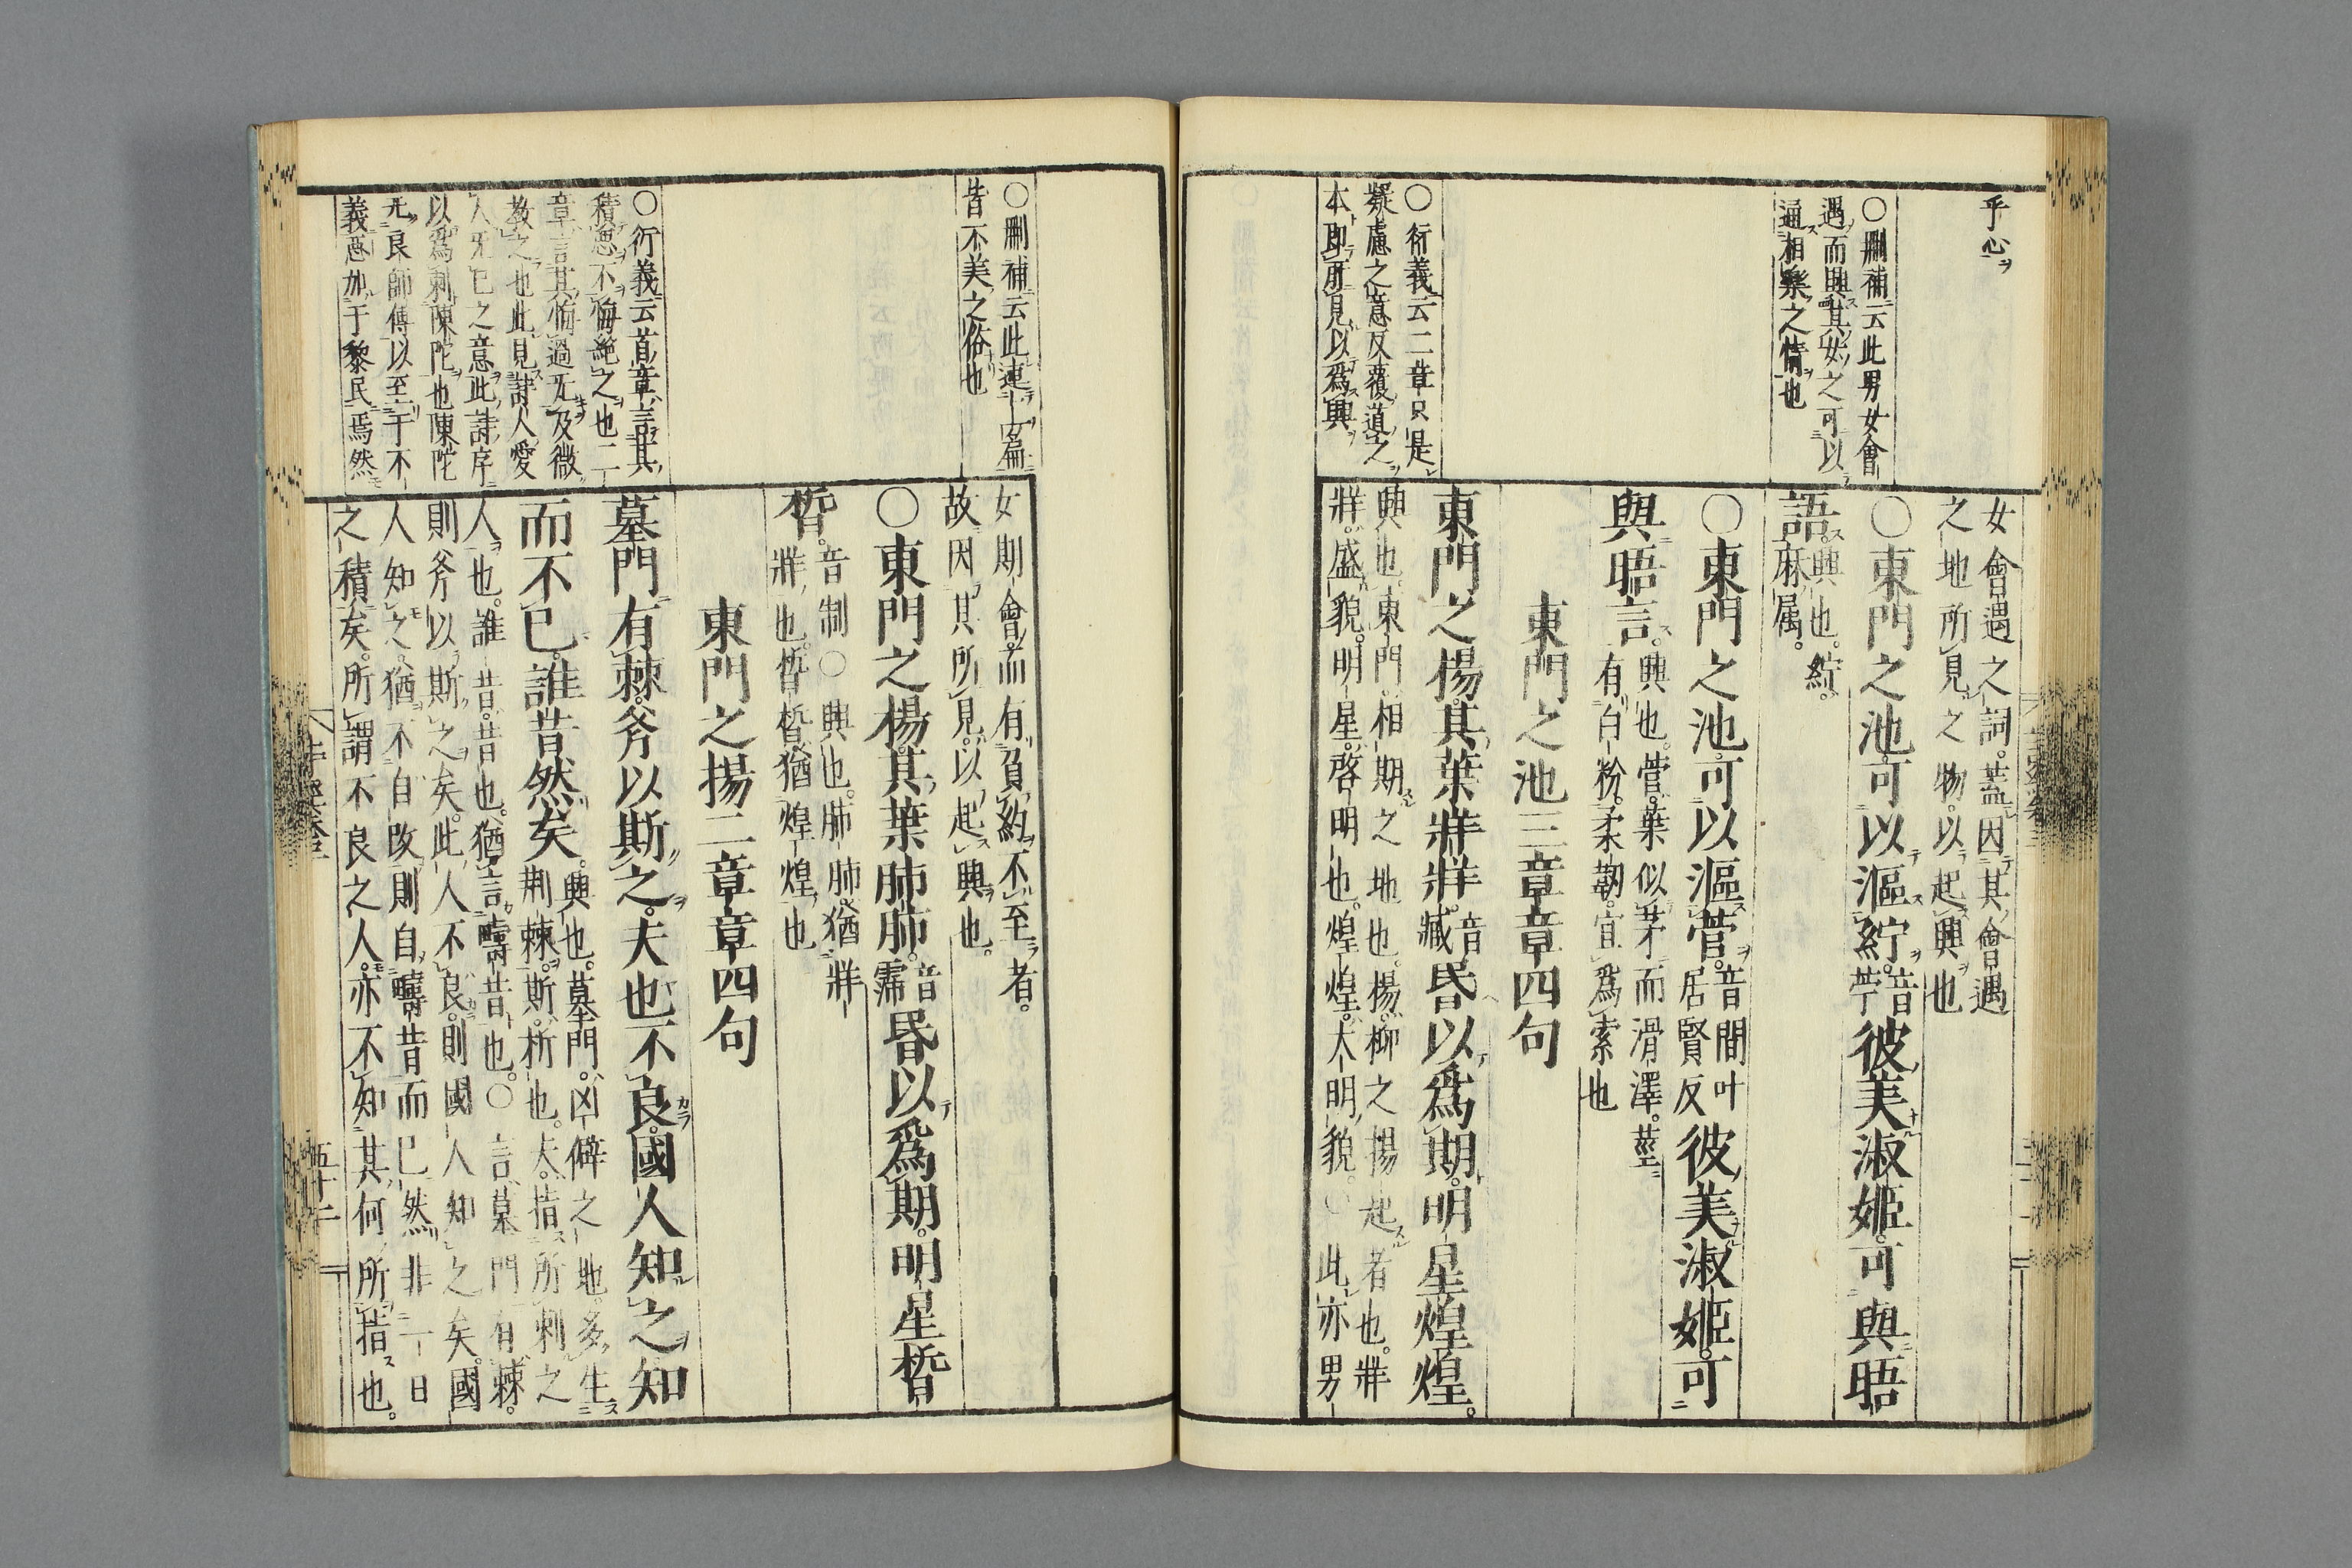 乎心
○刪補云此男女會
遇而興其女之可以
通相樂之情也
○衍義云二章只是
凝慮之意反覆道之
本即所見以爲興
女會遇之詞。蓋因其會遇
之地所見之物。以起興也
○東門之池。可以漚紵。音苧彼美淑姬。可與晤
語。興也。紵。麻屬。
○東門之池。可以漚菅。音間叶居賢反彼美淑姬。可
與晤言。興也。菅。葉似茅而滑澤。莖有白粉。柔韌。宜爲索也
東門之池三章章四句
東門之楊。其葉牂牂。音臧昏以爲期。明星煌煌。
興也。東門。相期之地也。楊。柳之揚起者也。牂
牂。盛貌。明星。啓明也。煌煌。大明貌。○此亦男
○刪補云此連下篇
皆不美之俗也
○衍義云首章言其
積惡不悔絶之也二
章言其悔過旡及微
教之也此見詩人愛
人旡已之意此詩序
以爲刺陳陀也陳陀
旡良師傅以至于不
義惡加于黎民焉然
女期會。而有負約不至者。
故因其所見。以起興也。
○東門之楊。其葉肺肺。音霈昏以爲期。明星晢
晢。音制○興也。肺肺。猶牂牂也。晢晢。猶煌煌也
東門之揚二章章四句
墓門有棘。斧以斯之。夫也不良。國人知之知
而不已。誰昔然矣。興也。墓門。凶僻之地。多生荆棘。斯。析也。夫。指所刺之
人也。誰昔。昔也。猶言疇昔也。○言墓門有棘。
則斧以斯之矣。此人不良。則國人知之矣。國
人知之。猶不自改。則自疇昔而已然。非一日
之積矣。所謂不良之人。亦不知其何所指也。
五十二